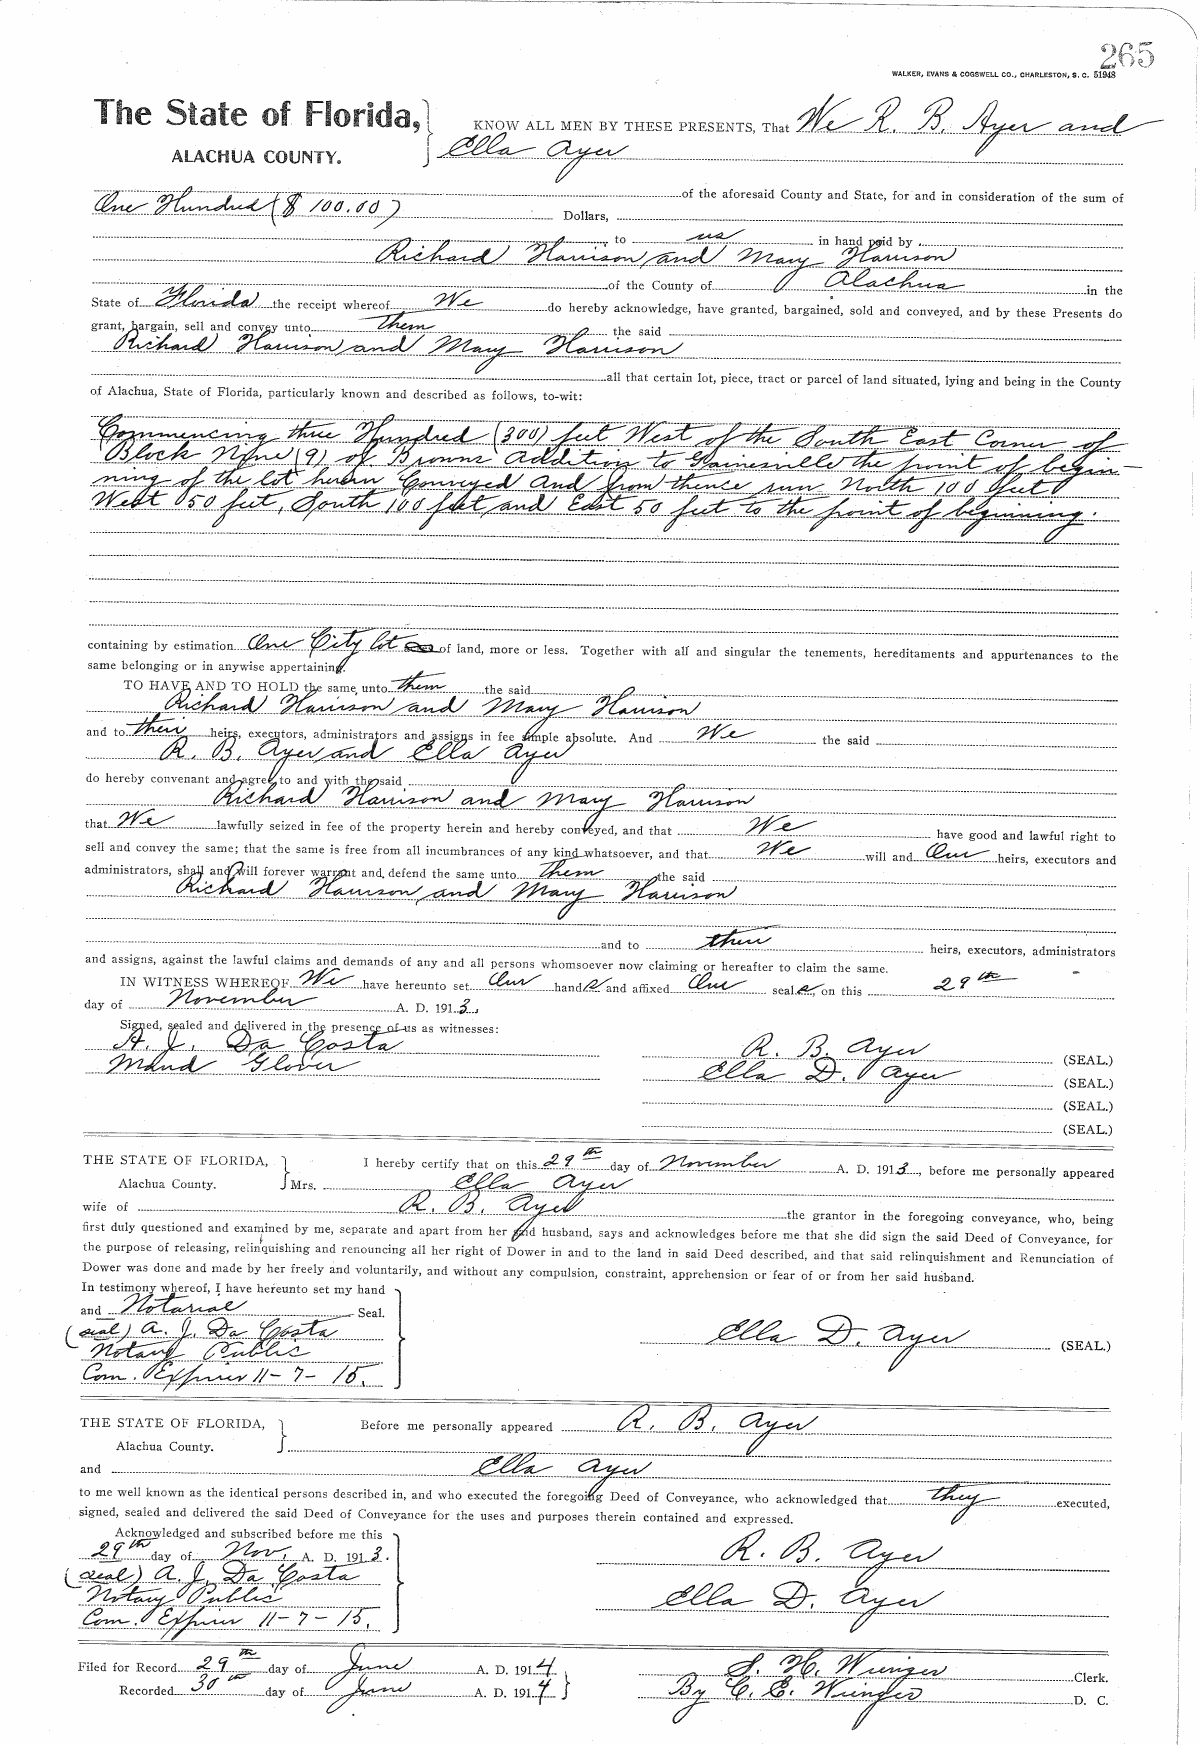 265
WALKER, EVANS & COGSWELL CO., CHARLESTON, S. C. 51948
The State of Florida,
ALACHUA COUNTY.
KNOW ALL MEN BY THESE PRESENTS, That We R. B. Ayer and
Ella Ayer
of the aforesaid County and State, for and in consideration of the sum of
One Hundred ($ 100.00) Dollars,
to us in hand paid by
Richard Harrison and Mary Harrison
of the County of Alachua in the
State of Florida the receipt whereof We do hereby acknowledge, have granted, bargained, sold and conveyed, and by these Presents do
grant, bargain, sell and convey unto them the said
Richard Harrison and Mary Harrison
all that certain lot, piece, tract or parcel of land situated, lying and being in the County
of Alachua, State of Florida, particularly known and described as follows, to-wit:
Commencing three Hundred (300) feet West of the South East Corner of
Block Nine (9) of Browns Addition to Gainesville the point of begin-
ning of the lot herein Conveyed and from thence run North 100 feet
West 50 feet, South 100 feet and East 50 feet to the point of beginning.
containing by estimation One City lot of land, more or less. Together with all and singular the tenements, hereditaments and appurtenances to the
same belonging or in anywise appertaining.
TO HAVE AND TO HOLD the same unto them the said
Richard Harrison and Mary Harrison
and to their heirs, executors, administrators and assigns in fee simple absolute. And We the said
R. B. Ayer and Ella Ayer
do hereby convenant and agree to and with the said
Richard Harrison and Mary Harrison
that We lawfully seized in fee of the property herein and hereby conveyed, and that We have good and lawful right to
sell and convey the same; that the same is free from all incumbrances of any kind whatsoever, and that We will and Our heirs, executors and
administrators, shall and will forever warrant and defend the same unto them the said
Richard Harrison and Mary Harrison
and to their heirs, executors, administrators
and assigns, against the lawful claims and demands of any and all persons whomsoever now claiming or hereafter to claim the same.
IN WITNESS WHEREOF We have hereunto set Our hands and affixed Our seals, on this 29th
day of November A. D. 1913.
Signed, sealed and delivered in the presence of us as witnesses:
A. J. Da Costa
Maud Glover
R. B. Ayer (SEAL.)
Ella D. Ayer (SEAL.)
(SEAL.)
(SEAL.)
THE STATE OF FLORIDA,
Alachua County.
I hereby certify that on this 29th day of November A. D. 1913, before me personally appeared
Mrs. Ella Ayer
wife of R. B. Ayer the grantor in the foregoing conveyance, who, being
first duly questioned and examined by me, separate and apart from her said husband, says and acknowledges before me that she did sign the said Deed of Conveyance, for
the purpose of releasing, relinquishing and renouncing all her right of Dower in and to the land in said Deed described, and that said relinquishment and Renunciation of
Dower was done and made by her freely and voluntarily, and without any compulsion, constraint, apprehension or fear of or from her said husband.
In testimony whereof, I have hereunto set my hand
and Notarial Seal.
(seal) A. J. Da Costa
Notary Public
Com. Expires 11-7-15.
Ella D. Ayer (SEAL.)
THE STATE OF FLORIDA,
Alachua County.
Before me personally appeared R. B. Ayer
and Ella Ayer
to me well known as the identical persons described in, and who executed the foregoing Deed of Conveyance, who acknowledged that they executed,
signed, sealed and delivered the said Deed of Conveyance for the uses and purposes therein contained and expressed.
Acknowledged and subscribed before me this
29th day of Nov. A. D. 1913.
(seal) A. J. Da Costa
Notary Public
Com. Expires 11-7-15.
R. B. Ayer
Ella D. Ayer
Filed for Record 29th day of June A. D. 1914
Recorded 30th day of June A. D. 1914
S. H. Wienges Clerk.
By C. E. Wienges D. C.